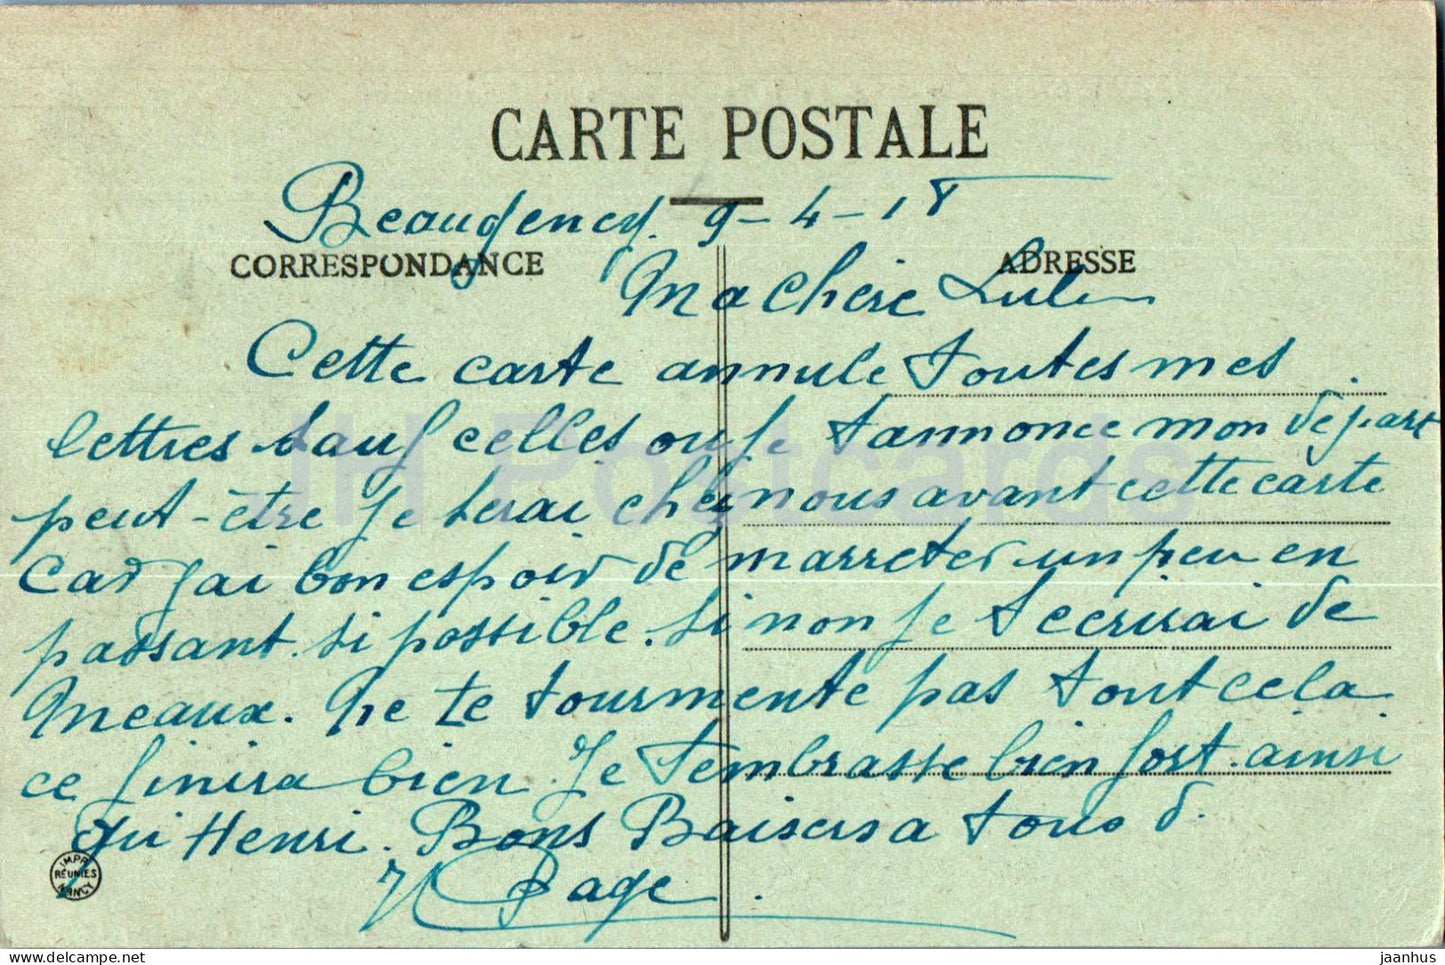 CARTE POSTALE
Beaugency. 9-4-18
CORRESPONDANCE
ADRESSE
Ma chère
Cette carte annule toutes mes
lettres sauf celles ou je t'annonce mon départ
peut-être je serai chez nous avant cette carte
Car j'ai bon espoir de m'arreter un peu en
passant si possible. Si non je t'ecrirai de
Meaux. Ne te tourmente pas tout cela
ce finira bien. Je t'embrasse bien fort. ainsi
qui Henri. Bons Baisers a tous d.
Page.
IMPR.
REUNIES
NANCY
JH Postcards
delcampe.net
jaanhus